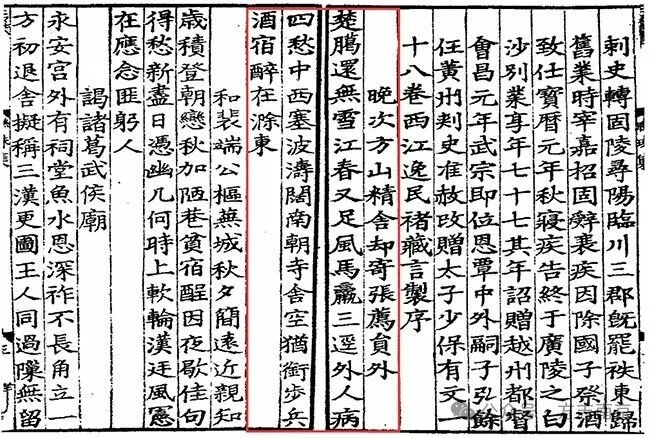 刺史轉固陵尋陽臨川三郡旣罷秩東歸
舊業時宰嘉招固辭衰疾因除國子祭酒
致仕寶曆元年秋寢疾告終于廣陵之白
沙別業享年七十七其年詔贈越州都督
會昌元年武宗即位恩覃中外嗣子弘餘
任黃州刾史准赦攺贈太子少保有文一
十八卷西江逸民褚藏言製序
晚次方山精舍却寄張薦員外
楚臈還無雪江春又足風馬羸三逕外人病
四愁中西塞波濤闊南朝寺舍空猶銜步兵
酒宿醉在滁東
和裴端公樞蕪城秋夕簡遠近親知
歲積登朝戀秋加陋巷貧宿酲因夜歇佳句
得愁新盡日憑幽几何時上軟輪漢廷風憲
在應念匪躬人
謁諸葛武侯廟
永安宮外有祠堂魚水恩深祚不長角立一
方初退舍擬稱三漢更圖王人同過隟無留